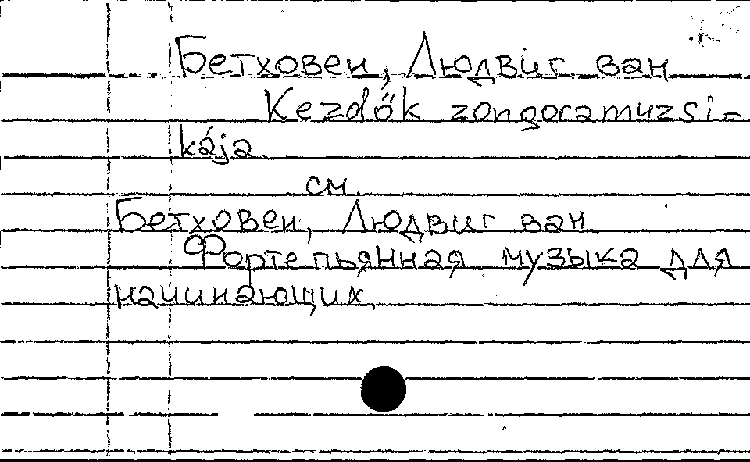 Бетховен, Людвиг ван
Kezdők zongoramuzsi-
kája.
см.
Бетховен, Людвиг ван
Фортепьянная музыка для
начинающих.